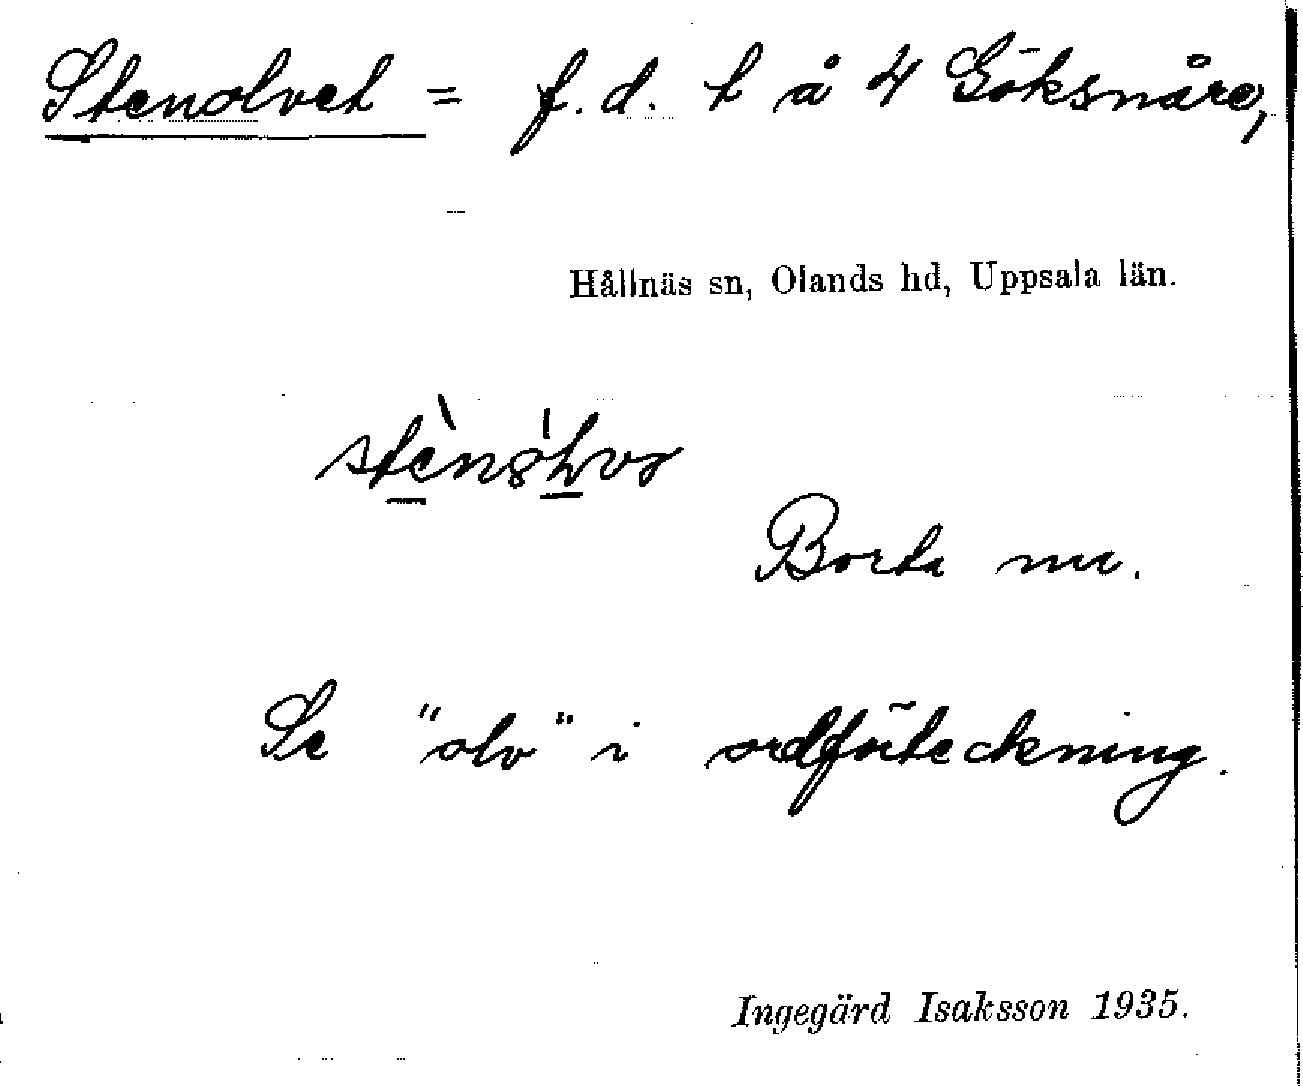 Stenolvet = f.d. t å 4 Göksnåre,
Hållnäs sn, Olands hd, Uppsala län.
Borta nu.
Se "olv" i ordförteckning.
Ingegärd Isaksson 1935.